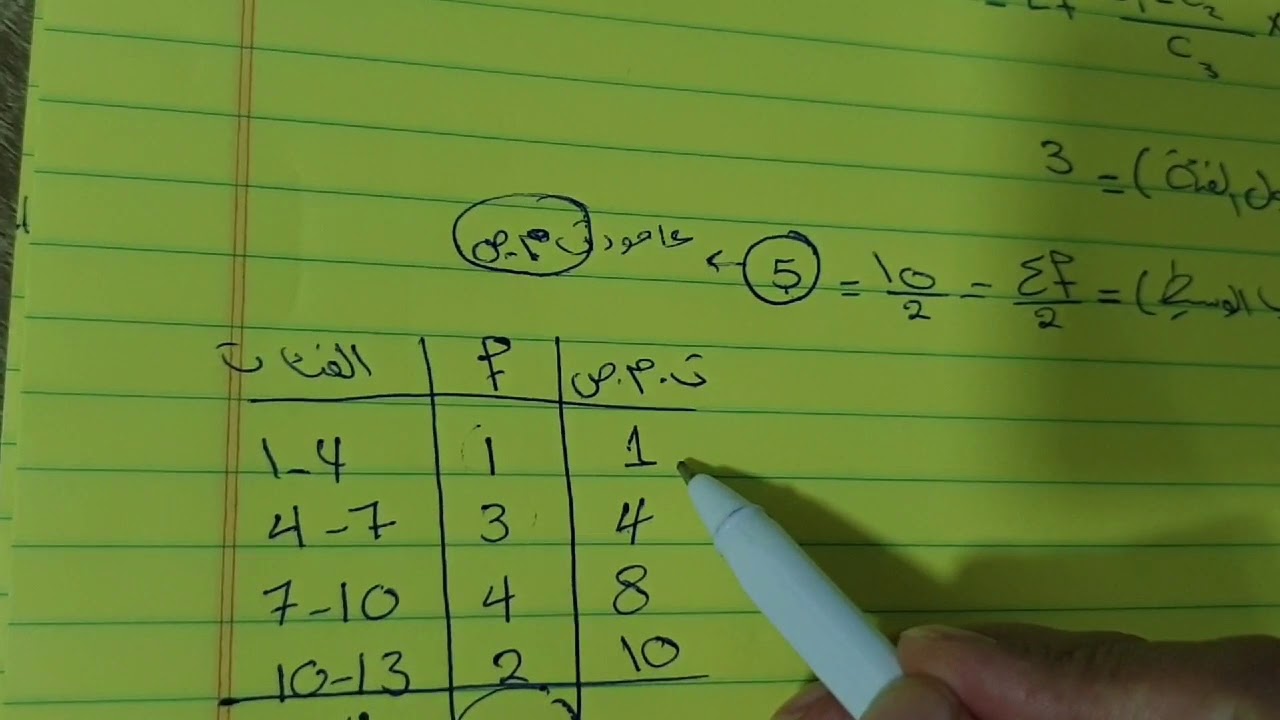 C₃
طول الفئة) = 3
الوسيط) = Σf/2 = 10/2 = 5 ← عامود ت.م.ص
الفئات f ت.م.ص
1-4 1 1
4-7 3 4
7-10 4 8
10-13 2 10